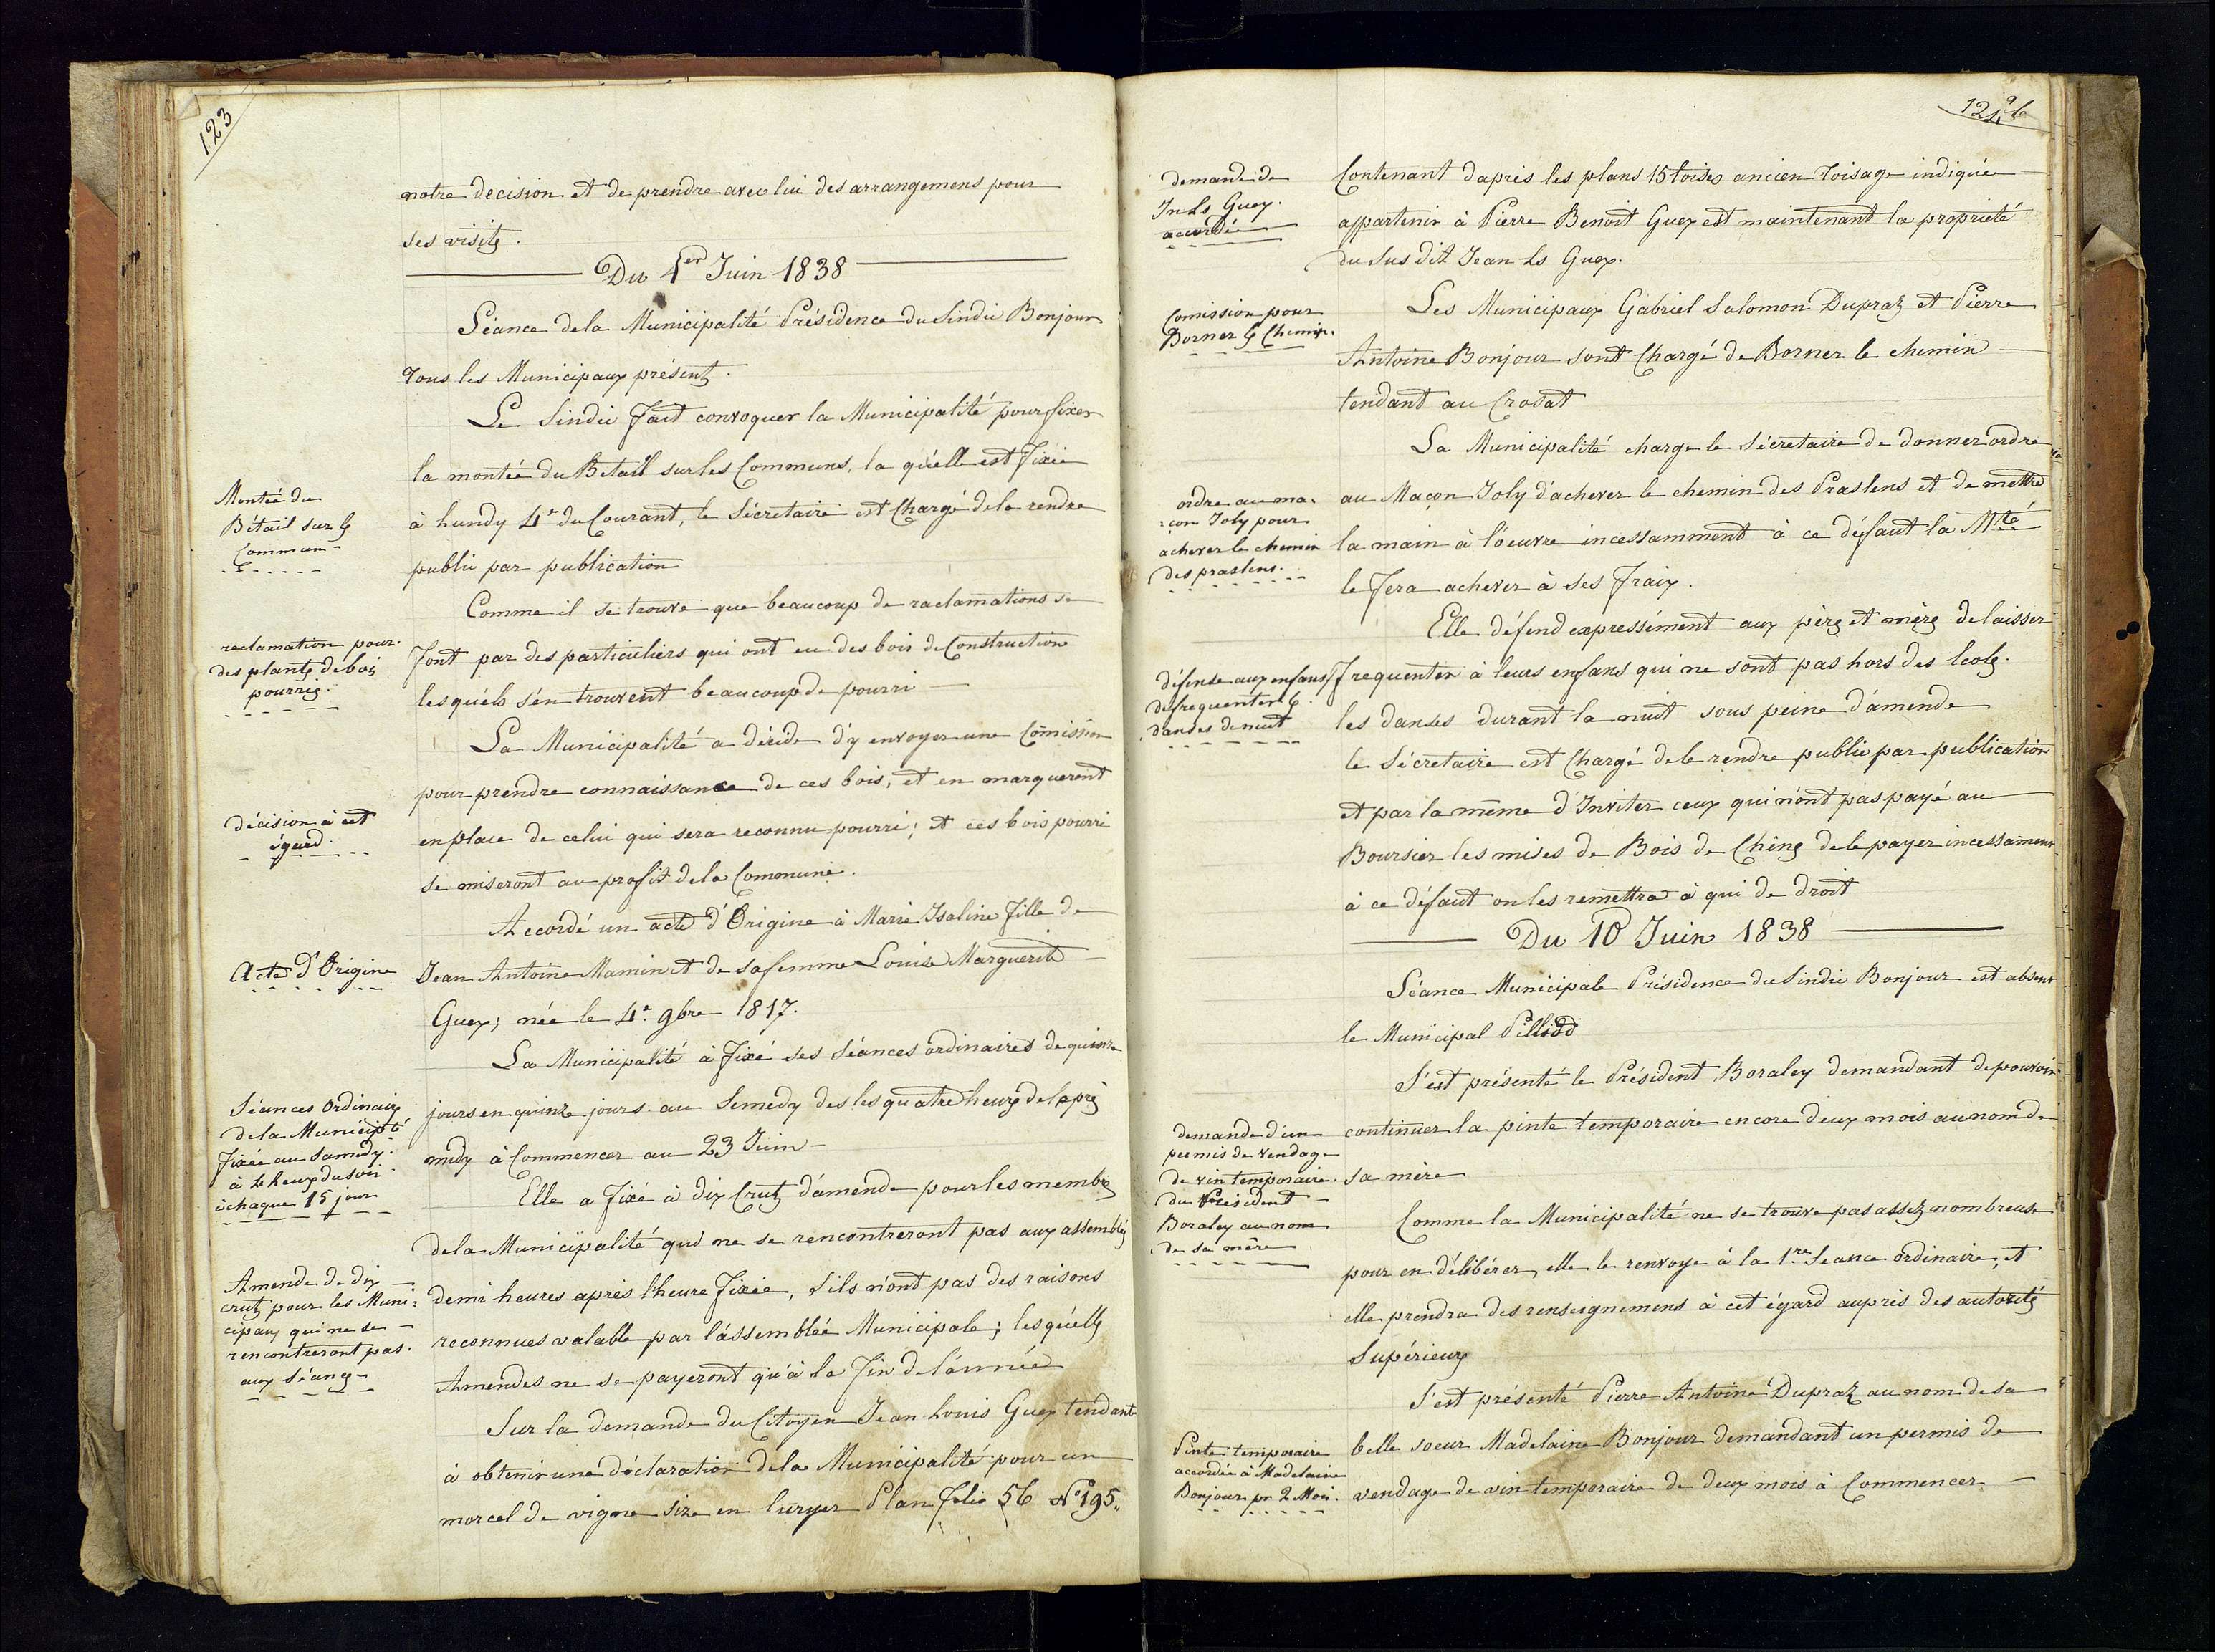 123
notre decision et de prendre avec lui des arrangemens pour
ses visites.
Du 1er Juin 1838
Séance de la Municipalité Présidence du Sindic Bonjour
tous les Municipaux présents.
Le Sindic fait convoquer la Municipalité pour fixer
la montée du Bétail sur les Communs, la qu'elle est fixée
Montée du
Bétail sur les
Commun
à Lundy 4e du Courant, le Sécretaire est Chargé de la rendre
public par publication
Comme il se trouve que beaucoup de raclamations se
reclamation pour
des plantes de bois
pourries.
font par des particuliers qui ont eu des bois de Construction
lesquéls s'én trouvent beaucoup de pourri
La Municipalité a décide d'y envoyer une Comission
pour prendre connaissance de ces bois, et en marqueront
décision à cet
égard.
en place de celui qui sera reconnu pourri; et ces bois pourri
se miseront au profit de la Commune.
Accordé un acte d'Origine à Marie Isaline fille de
Acte d'Origine
Jean Antoine Mamin et de sa femme Louise Marguerite
Guex; née le 4e 9bre 1817.
La Municipalité à fixé ses Séances ordinaires de quinze
Séances Ordinaires
de la Municipté
fixée au Samedy.
à 4 heures du soir
à chaque 15 jour
jours en quinze jours au Semedy des les quatre heures de l'aprés
midy à Commencer au 23 Juin
Elle a fixé à dix Crutz d'amende pour les membres
de la Municipalité qui ne se rencontreront pas aux assemblés
Amende de dix
crutz pour les Muni=
cipaux qui ne se
rencontreront pas
aux Séances
demi heures aprés l'heure fixée, s'ils n'ont pas des raisons
reconnues valable par l'assemblée Municipale; lesquélles
Amendes ne se payeront qu'à la fin de l'année
Sur la demande du Citoyen Jean Louis Guex tendante
à obtenir une déclaration de la Municipalité pour un
morcel de vigne size en Plan folio 56 No 195,,
124
demande de
Jn Ls Guex.
accordée
Contenant daprés les plans 15 toises ancien toisage indiquée
appartenir à Pierre Benoit Guex est maintenant la propriété
du sus dit Jean Ls Guex.
Comission pour
Borner le Chemin.
Les Municipaux Gabriel Salomon Dupraz et Pierre
Antoine Bonjour sont Chargé de Borner le chemin
tendant au Crosat
La Municipalité charge le Sécretaire de donner ordre
ordre au ma=
=con Joly pour
achever le chemin
des praslens.
au Maçon Joly d'achever le chemin des Praslens et de mettre
la main à l'oeuvre incessamment à ce défaut la Mté
le fera achever à ses fraix.
Elle défend expressément aux pères et mères de laisser
défense aux enfans
de frequenter les
danses de nuit
frequenter à leurs enfans qui ne sont pas hors des Ecoles.
les danses durant la nuit sous peine d'amende
le Sécretaire est Chargé de le rendre public par publication
et par la même d'Inviter ceux qui n'ont pas payé au
Boursier les mises de Bois de Chêne de le payer incessament
à ce défaut on les remettra à qui de droit
Du 10 Juin 1838
Séance Municipale Présidence du Sindic Bonjour est absent
le Municipal Pilliod
S'est présenté le Président Boraley demandant de pouvoir
demande d'un
permis de vendage
de vin temporaire.
du Président
Boraley au nom
de sa mère
continuer la pinte temporaire encore deux mois au nom de
sa mère
Comme la Municipalité ne se trouve pas assez nombreuse
pour en délibérer, elle le renvoye à la 1re Seance ordinaire, et
elle prendra des renseignemens à cet égard auprès des autorités
Supérieurs
S'est présenté Pierre Antoine Dupraz au nom de sa
Pinte temporaire
accordée à Madelaine
Bonjour pr 2 Mois.
belle soeur Madelaine Bonjour demandant un permis de
vendage de vin temporaire de deux mois à Commencer